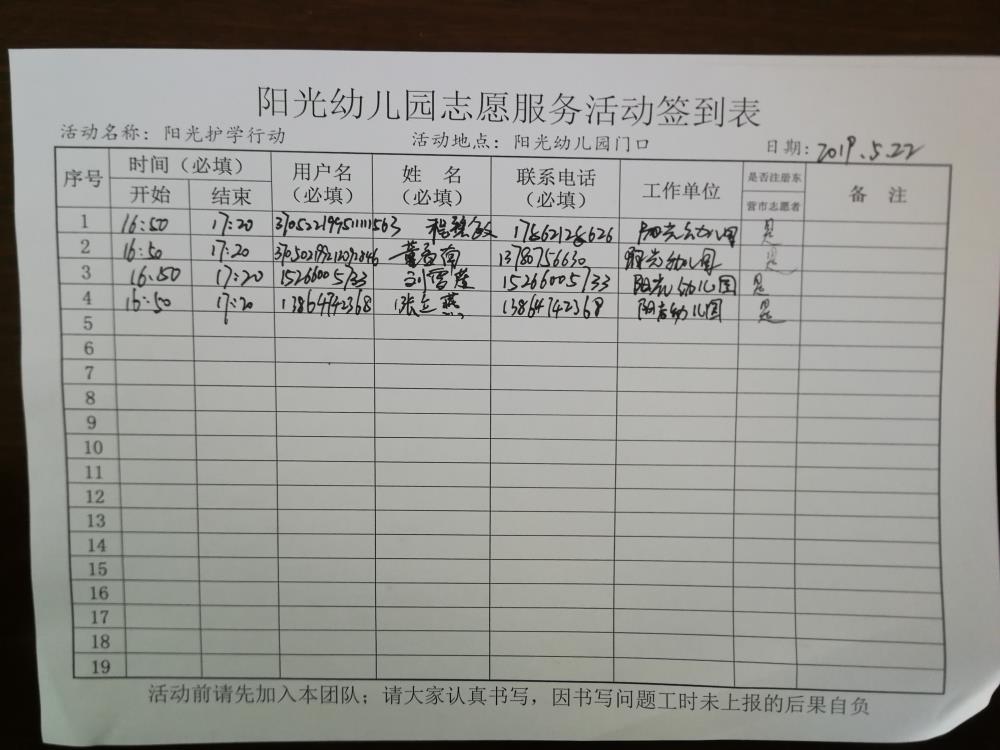 阳光幼儿园志愿服务活动签到表
活动名称：阳光护学行动 活动地点：阳光幼儿园门口 日期：2019.5.22
序号 时间（必填） 用户名（必填） 姓名（必填） 联系电话（必填） 工作单位 是否注册东营市志愿者 备注
开始 结束
1 16:50 17:20 17862128626 阳光幼儿园 是
2 16:50 17:20 13780756630 阳光幼儿园 是
3 16:50 17:20 15266005733 15266005733 阳光幼儿园 是
4 16:50 17:20 13864742368 张立燕 13864742368 阳光幼儿园 是
5
6
7
8
9
10
11
12
13
14
15
16
17
18
19
活动前请先加入本团队；请大家认真书写，因书写问题工时未上报的后果自负